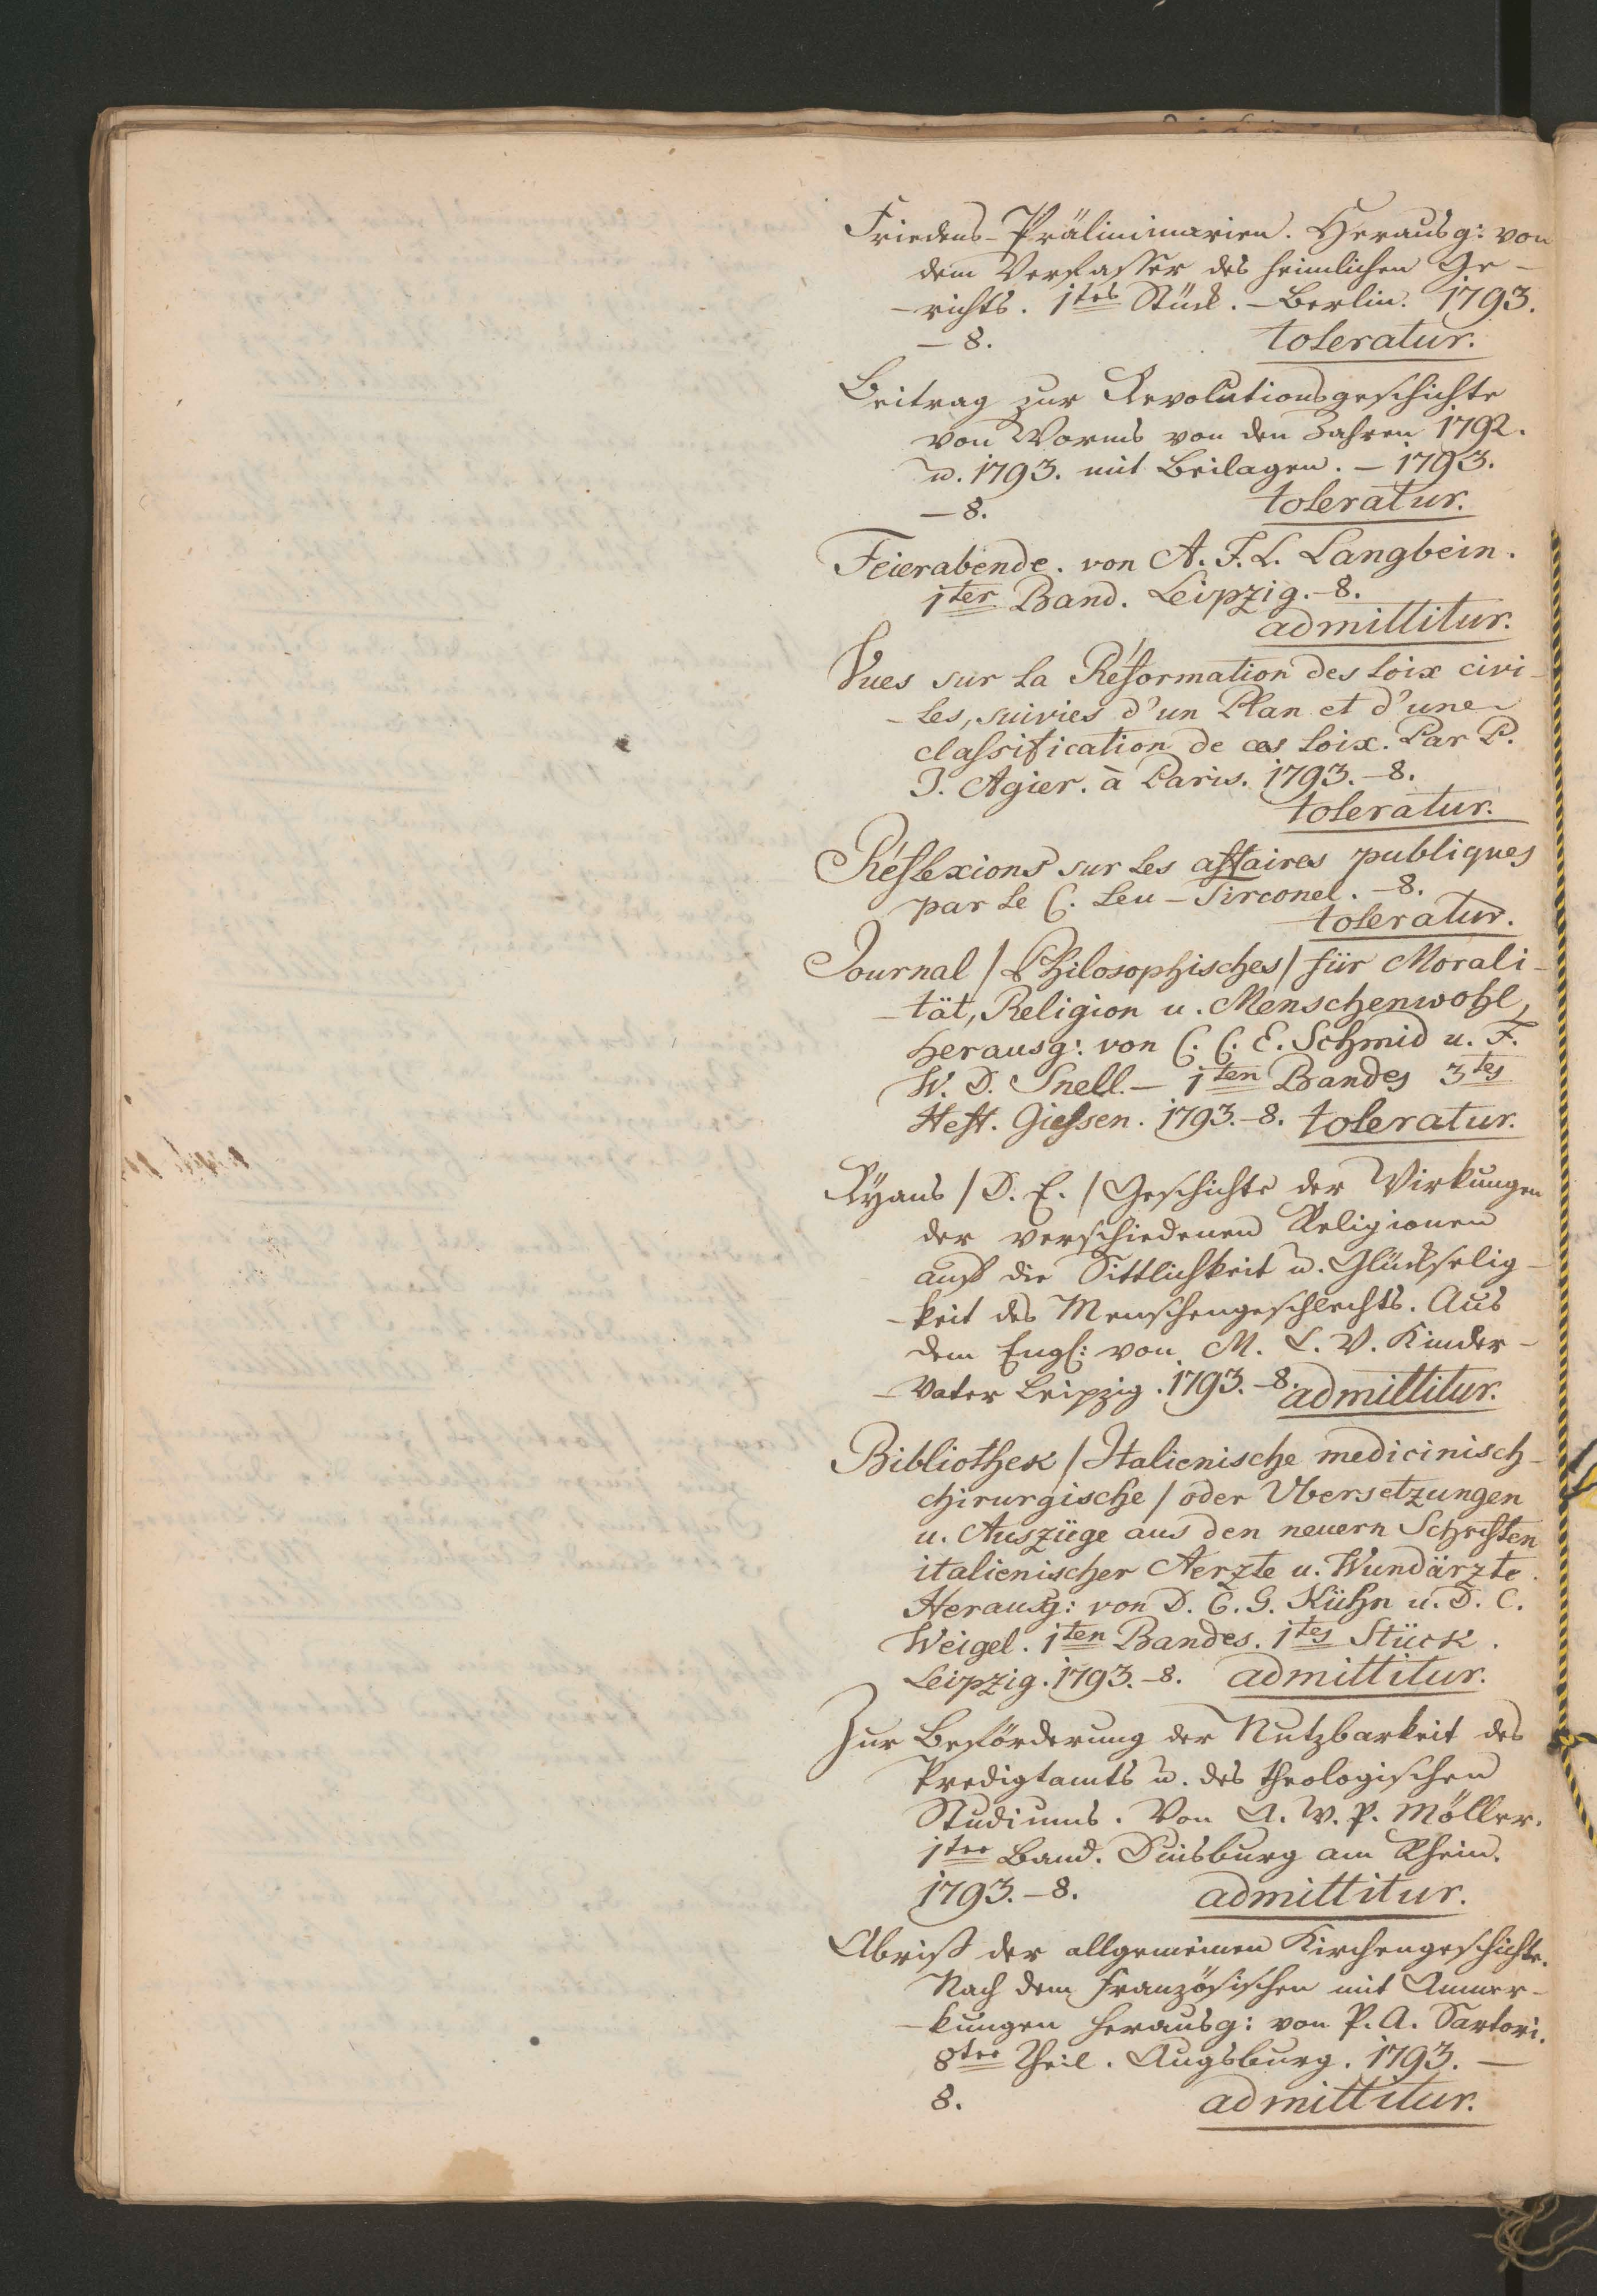 Friedens-Präliminarien. Herausg: von
dem Verfasser des heimlichen Ge-
-richts. 1tes Stück. - Berlin. 1793.
- 8. toleratur.
Beitrag zur Revolutionsgeschichte
von Worms von den Jahren 1792.
u. 1793. mit Beilagen. - 1793.
- 8. toleratur.
Feierabende. von A. F. L. Langbein.
1ter Band. Leipzig. - 8.
admittitur.
Vues sur la Réformation des loix civi-
-les, suivies d'un Plan et d'une
classification de ces loix. Par P.
J. Agier. à Paris. 1793. - 8.
toleratur.
Réflexions sur les affaires publiques
par le C. Leu - Tirconel. - 8.
toleratur.
Journal / Philosophisches / für Morali-
-tät, Religion u. Menschenwohl,
herausg: von C. C. E. Schmid u. F.
W. D. Snell. - 1ten Bandes 3tes
Heft. Giessen. 1793. - 8. toleratur.
Ryans / D. E. / Geschichte der Wirkungen
der verschiedenen Religionen
auf die Sittlichkeit u. Glückselig-
-keit des Menschengeschlechts. Aus
dem Engl: von M. C. V. Kinder-
-Vater Leipzig. 1793. - 8. admittitur.
Bibliothek / Italienische medicinisch-
chirurgische / oder Ubersetzungen
u. Auszüge aus den neuern Schriften
italienischer Aerzte u. Wundärzte.
Herausg: von D. C. G. Kühn u. D. C.
Weigel. 1ten Bandes. 1tes Stück.
Leipzig. 1793. - 8. admittitur.
Zur Beförderung der Nutzbarkeit des
Predigtamts u. des theologischen
Studiums. Von A. W. P. Möller.
1ter Band. Duisburg am Rhein.
1793. - 8. admittitur.
Abriß der allgemeinen Kirchengeschichte.
Nach dem Französischen mit Anmer-
-kungen herausg: von P. A. Sartori.
8ter Theil. Augsburg. 1793. -
8. admittitur.